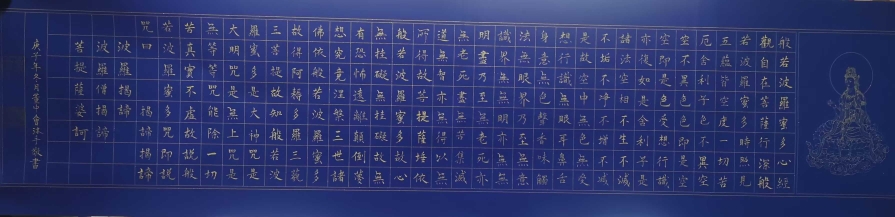 般若波羅蜜多心經
觀自在菩薩行深般
若波羅蜜多時照見
五蘊皆空度一切苦
厄舍利子色不異空
空不異色色即是空
空即是色受想行識
亦復如是舍利子是
諸法空相不生不滅
不垢不淨不增不減
是故空中無色無受
想行識無眼耳鼻舌
身意無色聲香味觸
法無眼界乃至無意
識界無無明亦無無
明盡乃至無老死亦
無老死盡無苦集滅
道無智亦無得以無
所得故菩提薩埵依
般若波羅蜜多故心
無挂礙無挂礙故無
有恐怖遠離顛倒夢
想究竟涅槃三世諸
佛依般若波羅蜜多
故得阿耨多羅三藐
三菩提故知般若波
羅蜜多是大神咒是
大明咒是無上咒是
無等等咒能除一切
苦真實不虛故說般
若波羅蜜多咒即說
咒曰 揭諦揭諦
波羅揭諦
波羅僧揭諦
菩提薩婆訶
年冬月董中會沐手敬書